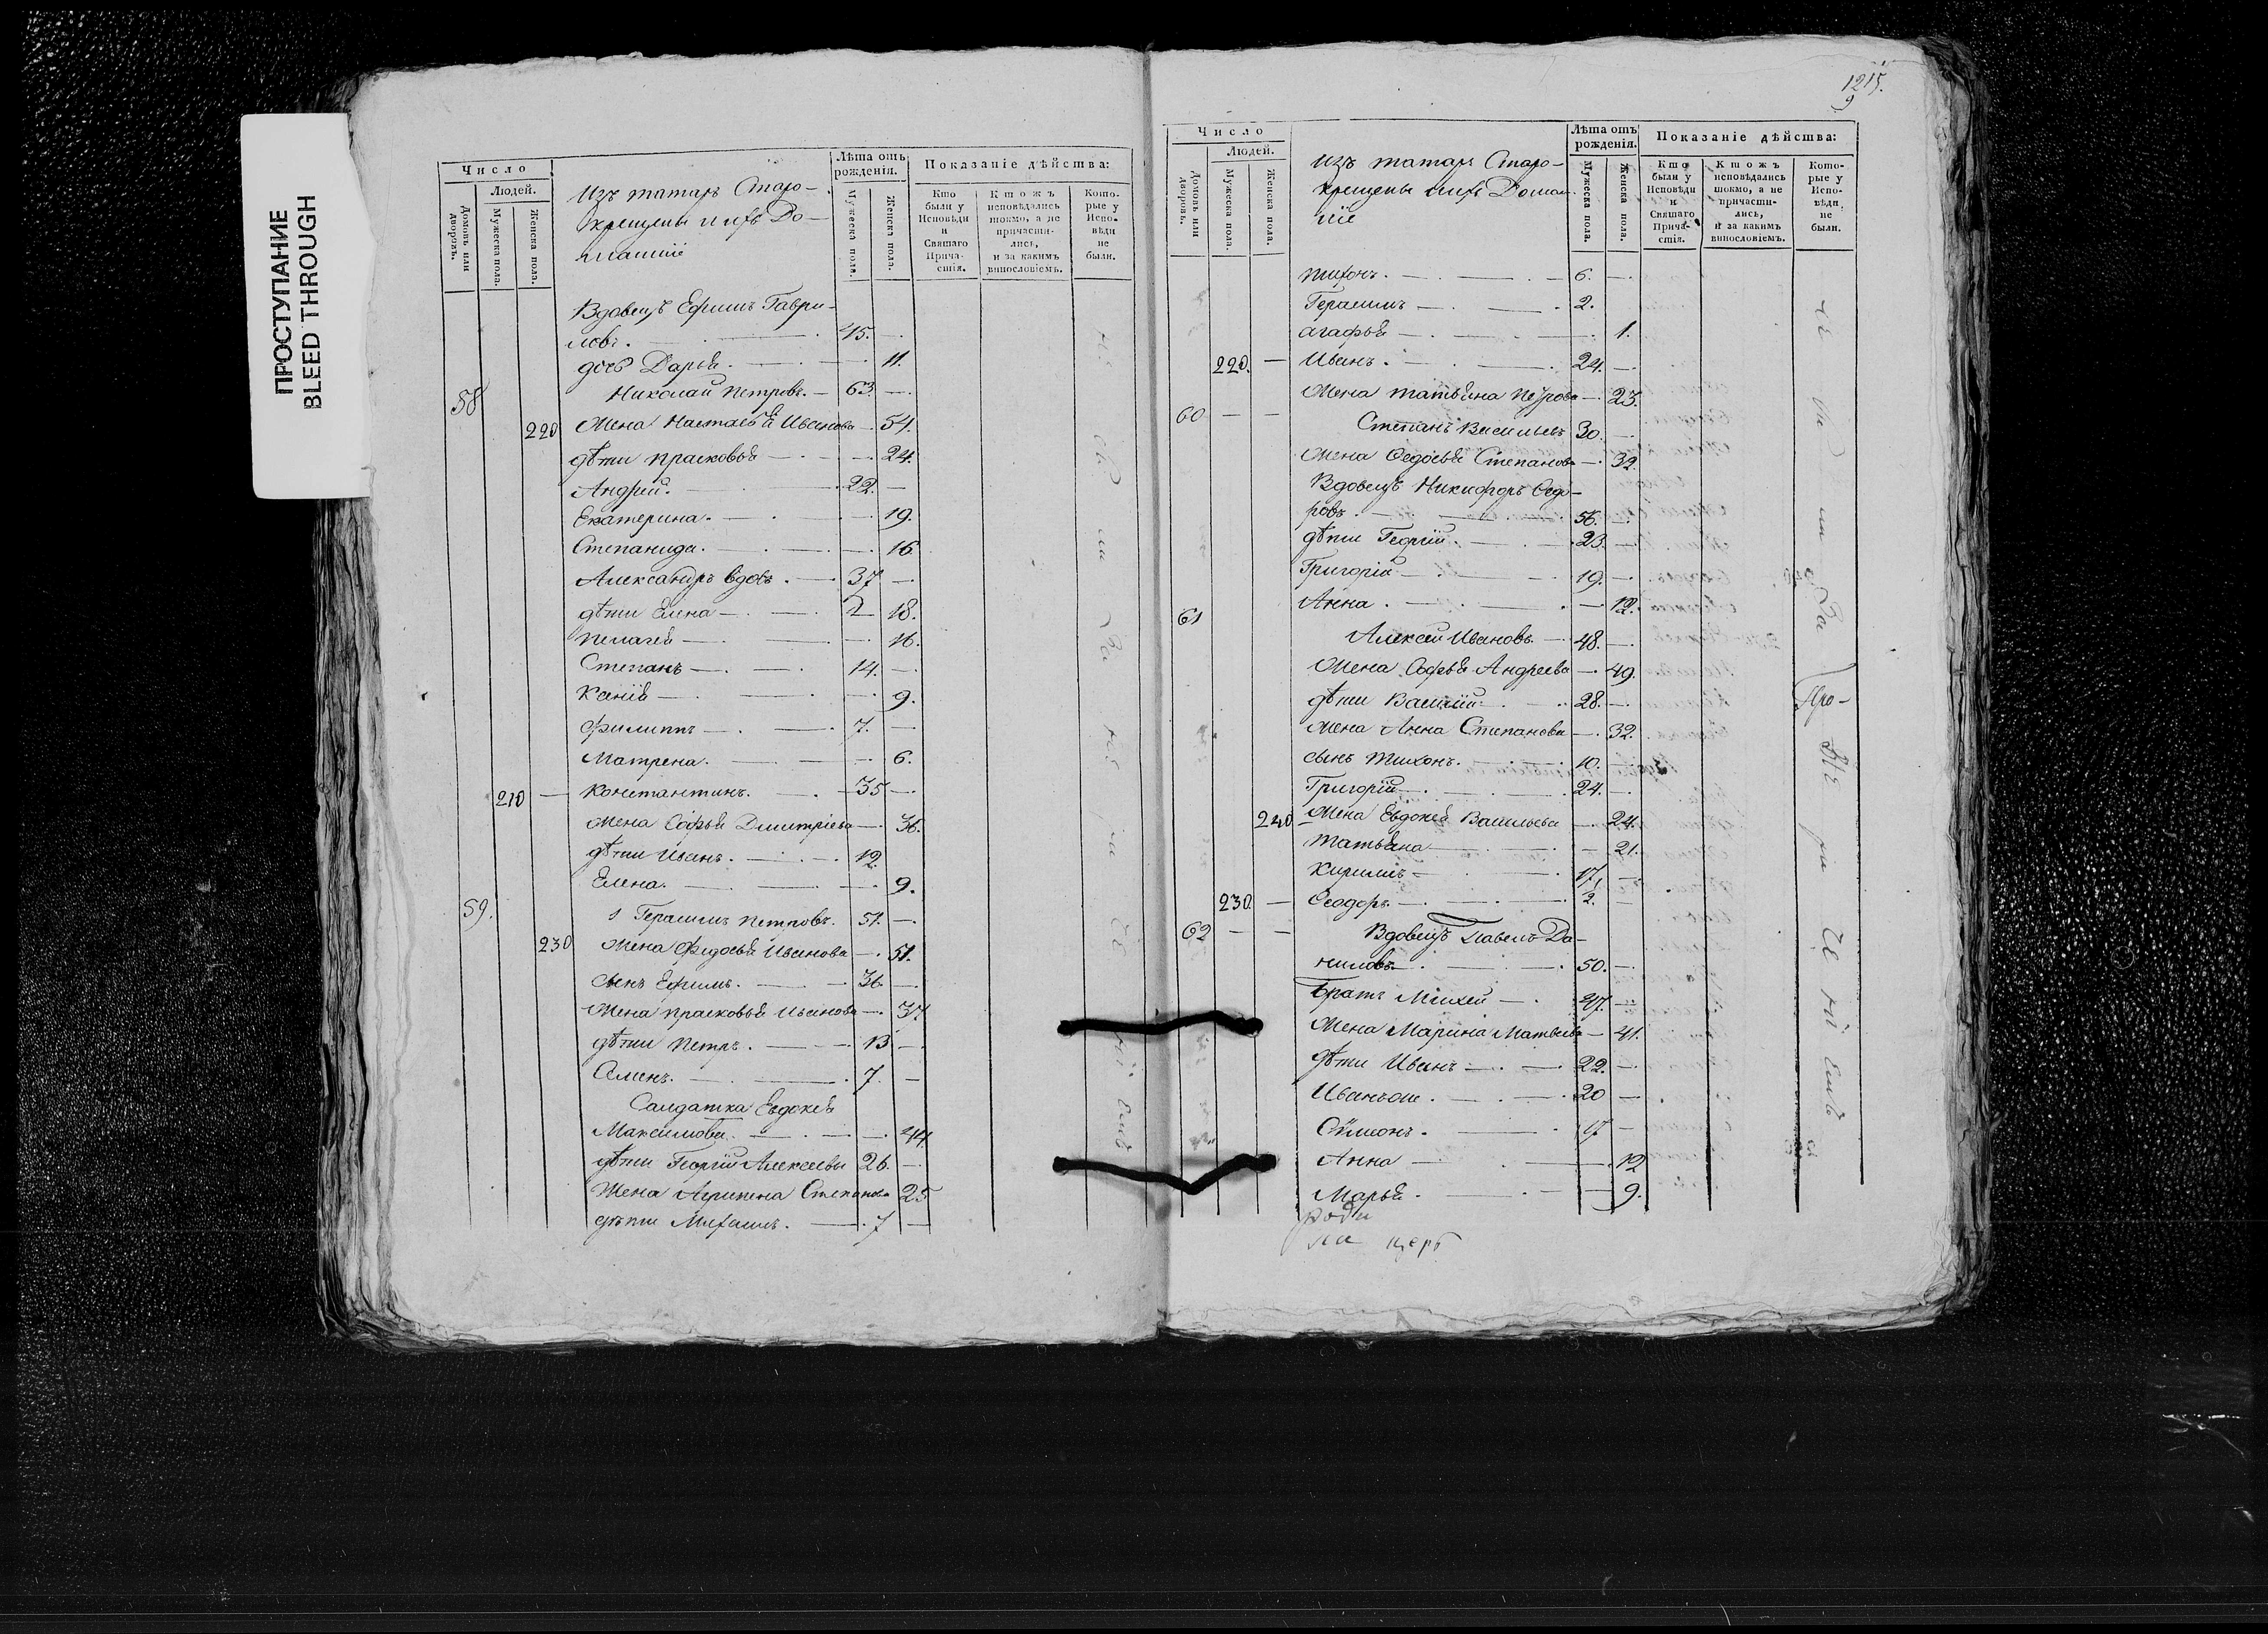 ПРОСТУПАНИЕ
BLEED THROUGH
Число
Людей.
Домовъ или дворовъ.
Мужеска пола.
Женска пола.
Изъ татаръ Старо-
крещены и ихъ До-
машніе
Лѣта отъ рожденія.
Мужеска пола.
Женска пола.
Показаніе дѣйства:
Кто были у Исповѣди и Святаго Прича-стія.
Ктожъ исповѣдались токмо, а не причасти-лись, и за какимъ винословіемъ.
Кото-рые у Испо-вѣди не были.
Вдовецъ Ефимъ Гаври-
ловъ. 45.
дочь Дарья. 11.
58 Николай Петровъ. 63.
220 Жена Настасья Иванова 54.
дѣти Прасковья 24.
Андрей. 22.
Екатерина. 19.
Степанида. 16
Александръ вдовъ. 37
дѣти Елена 18.
Пелагея 16.
Степанъ 14.
Ксенія 9.
Филиппъ 7.
Матрена. 6.
210 Константинъ. 35
Жена Софья Димитріева 36.
дѣти Иванъ. 12.
Елена. 9.
59. Герасимъ Петровъ. 51.
230 Жена Федосья Иванова 51.
сынъ Ефимъ. 36
Жена Прасковья Иванова 37
дѣти Петръ. 13
Семенъ. 7.
Салдатка Евдокея
Максимова. 44.
дѣти Георгій Алексеевъ 26.
Жена Агрипена Степанова 25
дѣти Михаилъ. 7
1215.
9
Число
Людей.
Домовъ или дворовъ.
Мужеска пола.
Женска пола.
Изъ татаръ Старо-
крещены ихъ Домаш-
ніе
Лѣта отъ рожденія.
Мужеска пола.
Женска пола.
Показаніе дѣйства:
Кто были у Исповѣди и Святаго Прича-стія.
Ктожъ исповѣдались токмо, а не причасти-лись, и за какимъ винословіемъ.
Кото-рые у Испо-вѣди не были.
Тихонъ. 6.
Герасимъ 2.
Агафья 1.
220. Иванъ. 24.
Жена Татьяна Петрова 23.
60 Степанъ Васильевъ 30.
Жена Федосья Степанова 32.
Вдовецъ Никифоръ Федо-
ровъ. 56.
дѣти Георгій. 23.
Григорій 19.
Анна. 12.
61 Алексей Ивановъ. 48.
Жена Софья Андреева 49.
дѣти Василій 28.
Жена Анна Степанова 32.
сынъ Тихонъ. 10.
Григорій 24.
240 Жена Евдокея Васильева 24.
Татьяна 21.
Кирилъ 17.
230. Феодоръ. 2.
62 Вдовецъ Павелъ Да-
ниловъ. 50.
братъ Михей 47.
Жена Марина Матвеева 41.
дѣти Иванъ 22.
Иванъ 20
Симионъ. 17
Анна 12
Марья. 9.